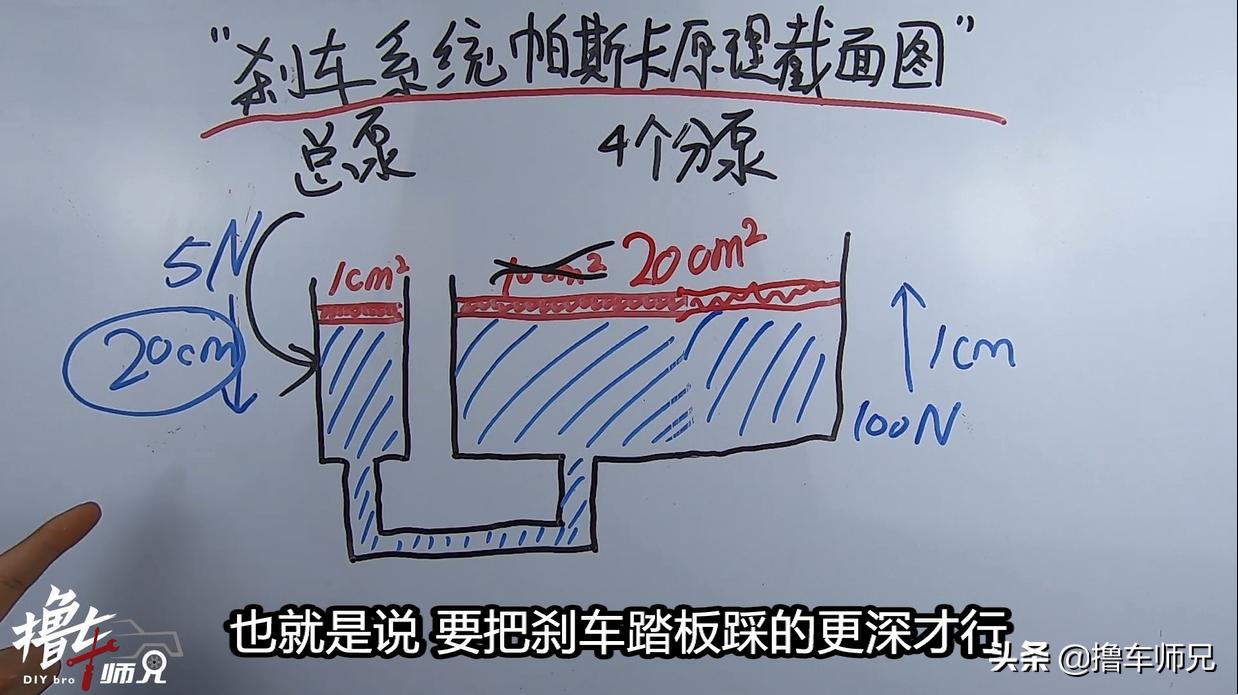 "刹车系统帕斯卡原理截面图"
总泵
4个分泵
5N
1cm²
10cm²
20cm²
20cm
1cm
100N
也就是说 要把刹车踏板踩的更深才行
撸车师兄
DIY bro
头条 @撸车师兄